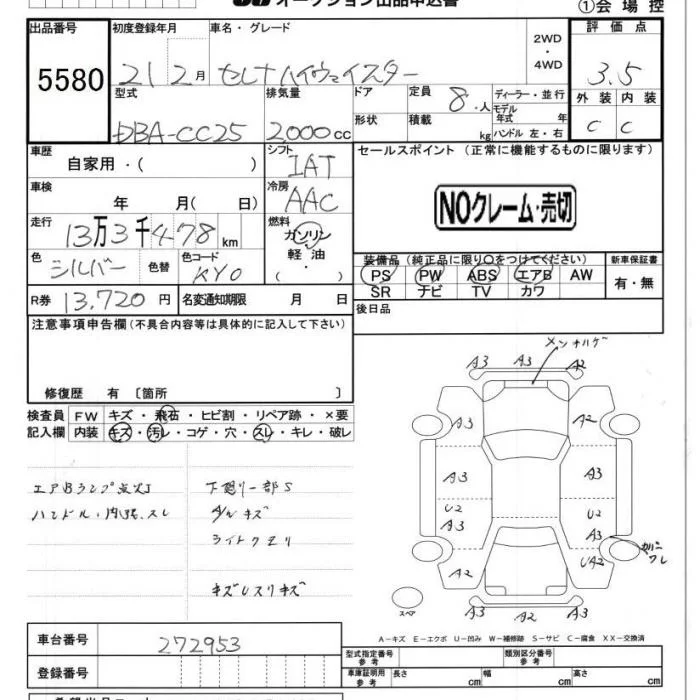 オークション出品申込書
①会場控
出品番号 初度登録年月 車名・グレード 2WD・4WD 評価点
5580 21 2月 セレナハイウェイスター 3.5
型式 排気量 ドア 定員 8人 ディーラー・並行 外装 内装
DBA-CC25 2,000cc 形状 積載 kg モデル年式 年 ハンドル 左・右 C C
車歴 自家用・( ) シフト IAT セールスポイント (正常に機能するものに限ります)
車検 年 月( 日) 冷房 AAC
NOクレーム・売切
走行 13万3千478km 燃料 ガソリン 軽油
色 シルバー 色替 色コード KY0
装備品 (純正品に限り○をつけてください) 新車保証書
PS PW ABS エアB AW 有・無
SR ナビ TV カワ
R券 13,720円 名変通知期限 月 日 後日品
注意事項申告欄 (不具合内容等は具体的に記入して下さい)
修復歴 有 〔箇所 〕
検査員 FW キズ・飛石・ヒビ割・リペア跡・×要
記入欄 内装 キズ・汚レ・コゲ・穴・スレ・キレ・破レ
エアBランプ点灯 下廻り一部S
A/Wキズ
ライトクモリ
メンナハゲ
A3 A3 A2
A3 A2
A3 A3
U2 U2
A3 A3
A2 UA2
スペア
A3 A2 A3
A-キズ E-エクボ U-凹み W-補修跡 S-サビ C-腐食 XX-交換済
車台番号 272953
登録番号
型式指定番号 参考 類別区分番号 参考
車庫証明用 参考 長さ cm 幅 cm 高さ cm